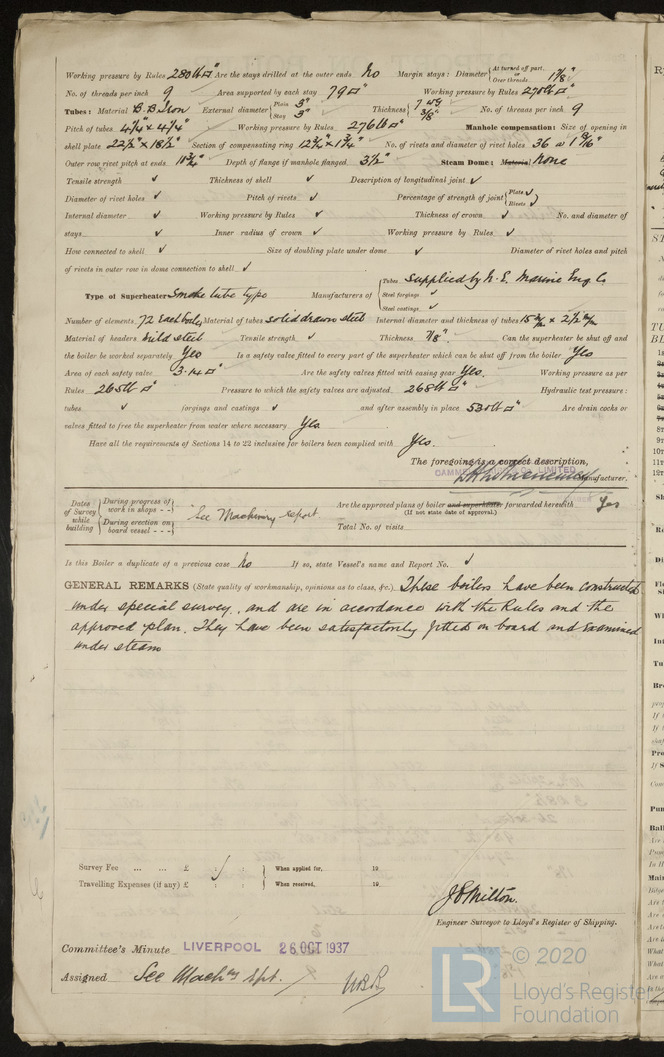 Working pressure by Rules 280 lb □" Are the stays drilled at the outer ends No Margin stays: Diameter { At turned off part. or Over threads. 1 7/8"
No. of threads per inch 9 Area supported by each stay 79 □" Working pressure by Rules 270 lb □"
Tubes: Material B.B. Iron External diameter { Plain 3" Stay 3" Thickness { 7 WG 3/8" No. of threads per inch 9
Pitch of tubes 4 1/4" x 4 1/4" Working pressure by Rules 276 lb □" Manhole compensation: Size of opening in
shell plate 22 1/2" x 18 1/2" Section of compensating ring 12 3/4" x 1 3/4" No. of rivets and diameter of rivet holes 36 @ 1 9/16"
Outer row rivet pitch at ends 11 3/4" Depth of flange if manhole flanged 3 1/2" Steam Dome: Material None
Tensile strength ✓ Thickness of shell ✓ Description of longitudinal joint ✓
Diameter of rivet holes ✓ Pitch of rivets ✓ Percentage of strength of joint { Plate ✓ Rivets
Internal diameter ✓ Working pressure by Rules ✓ Thickness of crown ✓ No. and diameter of
stays ✓ Inner radius of crown ✓ Working pressure by Rules ✓
How connected to shell ✓ Size of doubling plate under dome ✓ Diameter of rivet holes and pitch
of rivets in outer row in dome connection to shell ✓
Type of Superheater Smoke tube type Manufacturers of { Tubes Supplied by N.E. Marine Eng Co
Steel forgings ✓
Steel castings ✓
Number of elements 72 Each boiler Material of tubes solid drawn steel Internal diameter and thickness of tubes 15 m/m x 2 1/2 m/m
Material of headers mild steel Tensile strength ✓ Thickness 7/8" Can the superheater be shut off and
the boiler be worked separately Yes Is a safety valve fitted to every part of the superheater which can be shut off from the boiler Yes
Area of each safety valve 3.14 □" Are the safety valves fitted with easing gear Yes. Working pressure as per
Rules 265 lb □" Pressure to which the safety valves are adjusted 268 lb □" Hydraulic test pressure:
tubes ✓ forgings and castings ✓ and after assembly in place 530 lb □" Are drain cocks or
valves fitted to free the superheater from water where necessary Yes
Have all the requirements of Sections 14 to 22 inclusive for boilers been complied with Yes.
The foregoing is a correct description,
LIMITED
Manufacturer.
Dates of Survey while building { During progress of work in shops - - } See Machinery report Are the approved plans of boiler and superheater forwarded herewith Yes
(If not state date of approval.)
During erection on board vessel - - - Total No. of visits
Is this Boiler a duplicate of a previous case No If so, state Vessel's name and Report No. ✓
GENERAL REMARKS (State quality of workmanship, opinions as to class, &c.) These boilers have been constructed
under special survey, and are in accordance with the Rules and the
approved plan. They have been satisfactorily fitted on board and Examined
under steam
Survey Fee ... ... £ : : When applied for, 19
Travelling Expenses (if any) £ : : When received, 19
J B Milton.
Engineer Surveyor to Lloyd's Register of Shipping.
Committee's Minute LIVERPOOL 26 OCT 1937
Assigned See Machy rpt.
LR © 2020
Lloyd's Register
Foundation